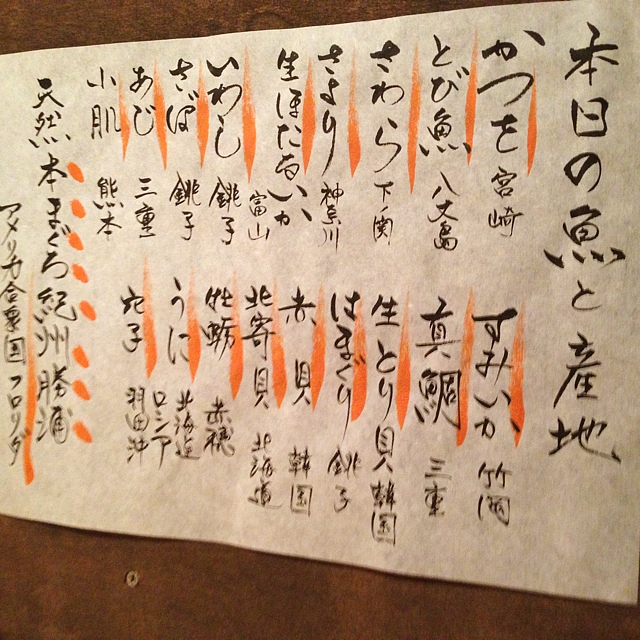 本日の魚と産地
かつを 宮崎
とび魚 八丈島
さわら 下関
さより 神奈川
生ほたるいか 富山
いわし 銚子
さば 銚子
あじ 三重
小肌 熊本
すみいか 竹岡
真鯛 三重
生とり貝 韓国
はまぐり 銚子
赤貝 韓国
北寄貝 北海道
牡蛎 赤穂
うに 北海道
ロシア
穴子 羽田沖
天然本まぐろ 紀州勝浦
アメリカ合衆国 フロリダ